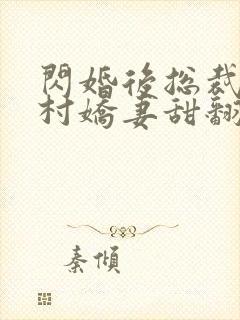 閃婚後總裁
村嬌妻甜翻
秦傾